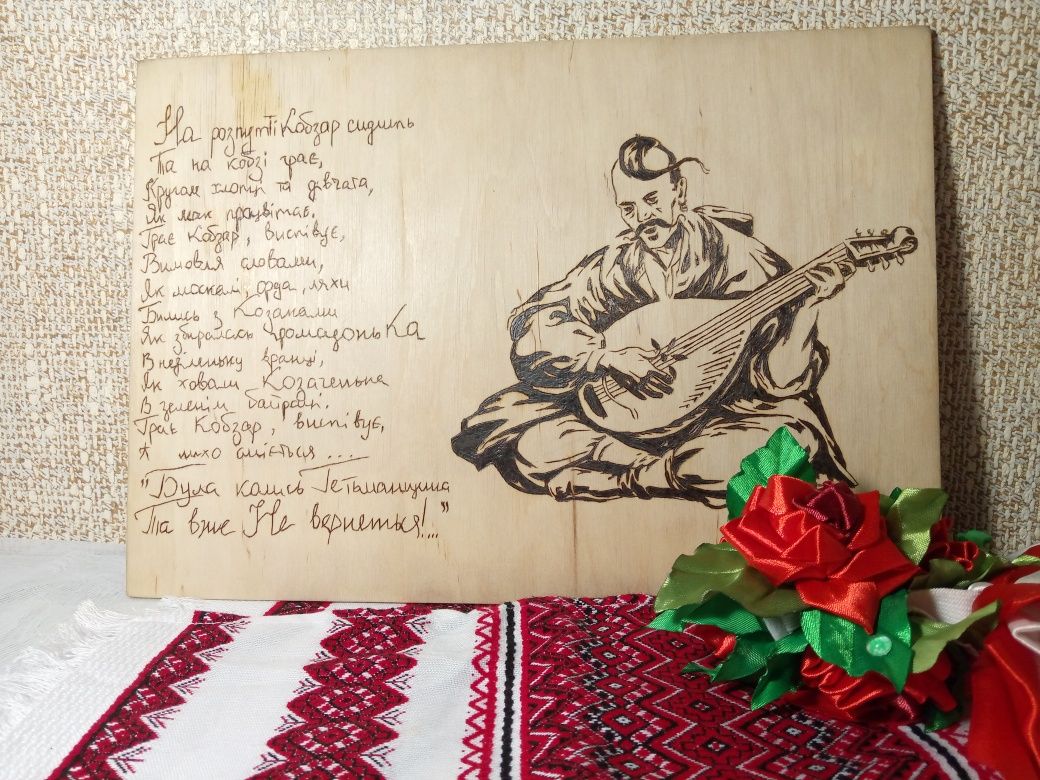 На розпутті Кобзар сидить
Та на кобзі грає,
Кругом хлопці та дівчата,
Як мак процвітає.
Грає Кобзар, виспівує,
Вимовля словами,
Як москалі, орда, ляхи
Бились з Козаками
Як збиралась громадонька
В неділеньку вранці,
Як ховали Козаченька
В зеленім байраці.
Грає Кобзар, виспівує,
А лихо сміється ....
"Була колись Гетьманщина
Та вже Не вернеться!..."